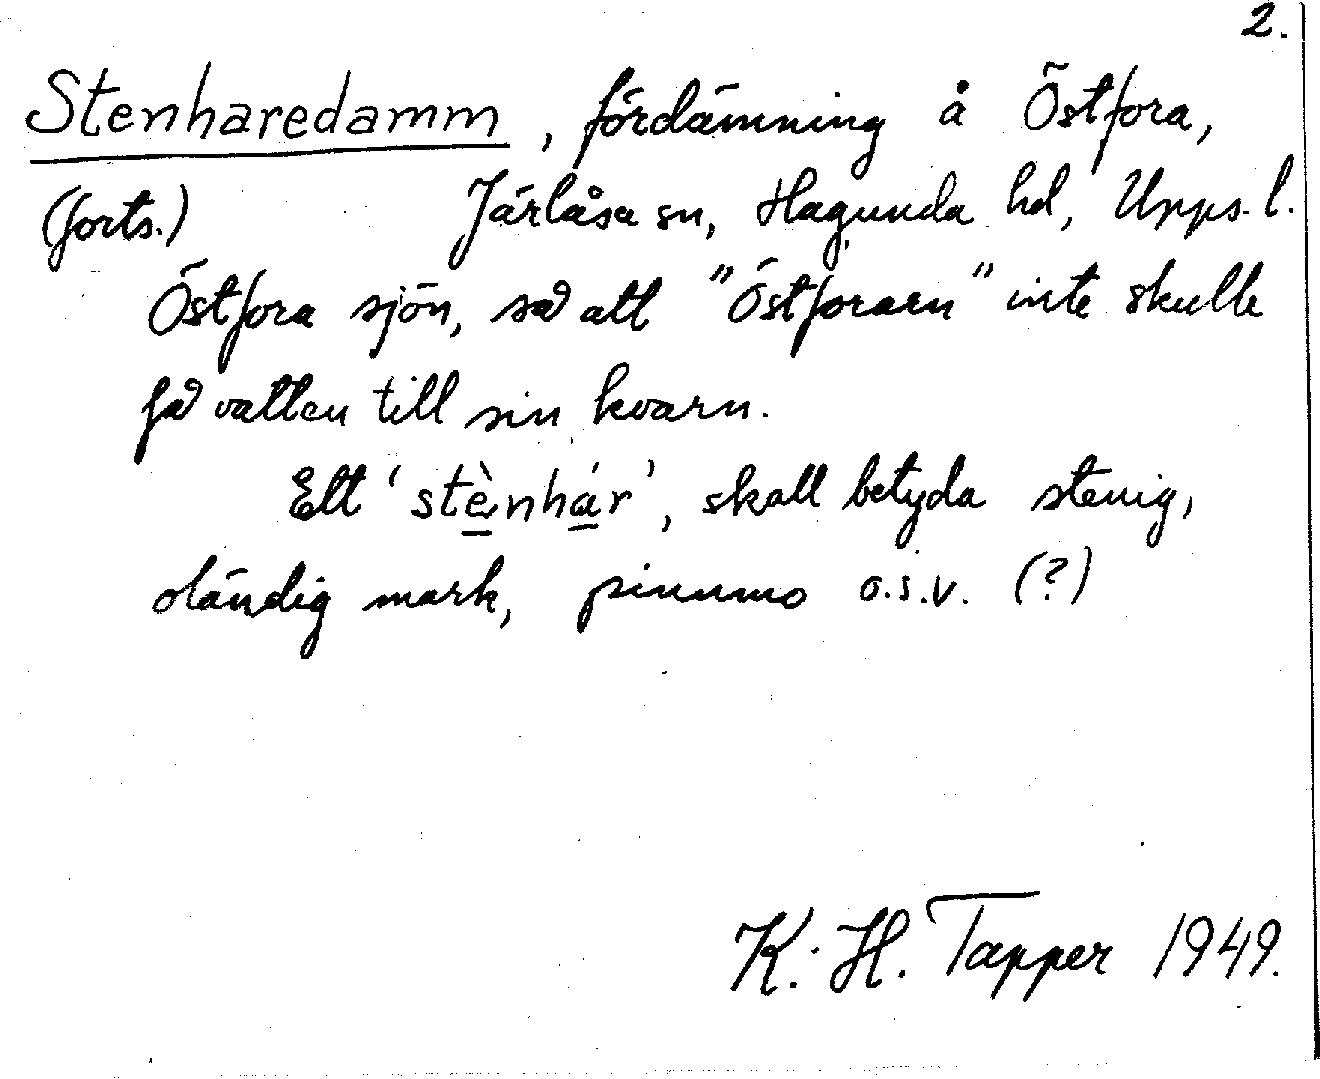 2.
Stenharedamm, fördämning å Östfora,
(forts.) Järlåsa sn, Hagunda hd, Upps. l.
Östfora sjön, så att "östforarn" inte skulle
få vatten till sin kvarn.
Ett 'stènhár', skall betyda stenig,
oländig mark, pinnmo o.s.v. (?)
K. H. Tapper 1949.